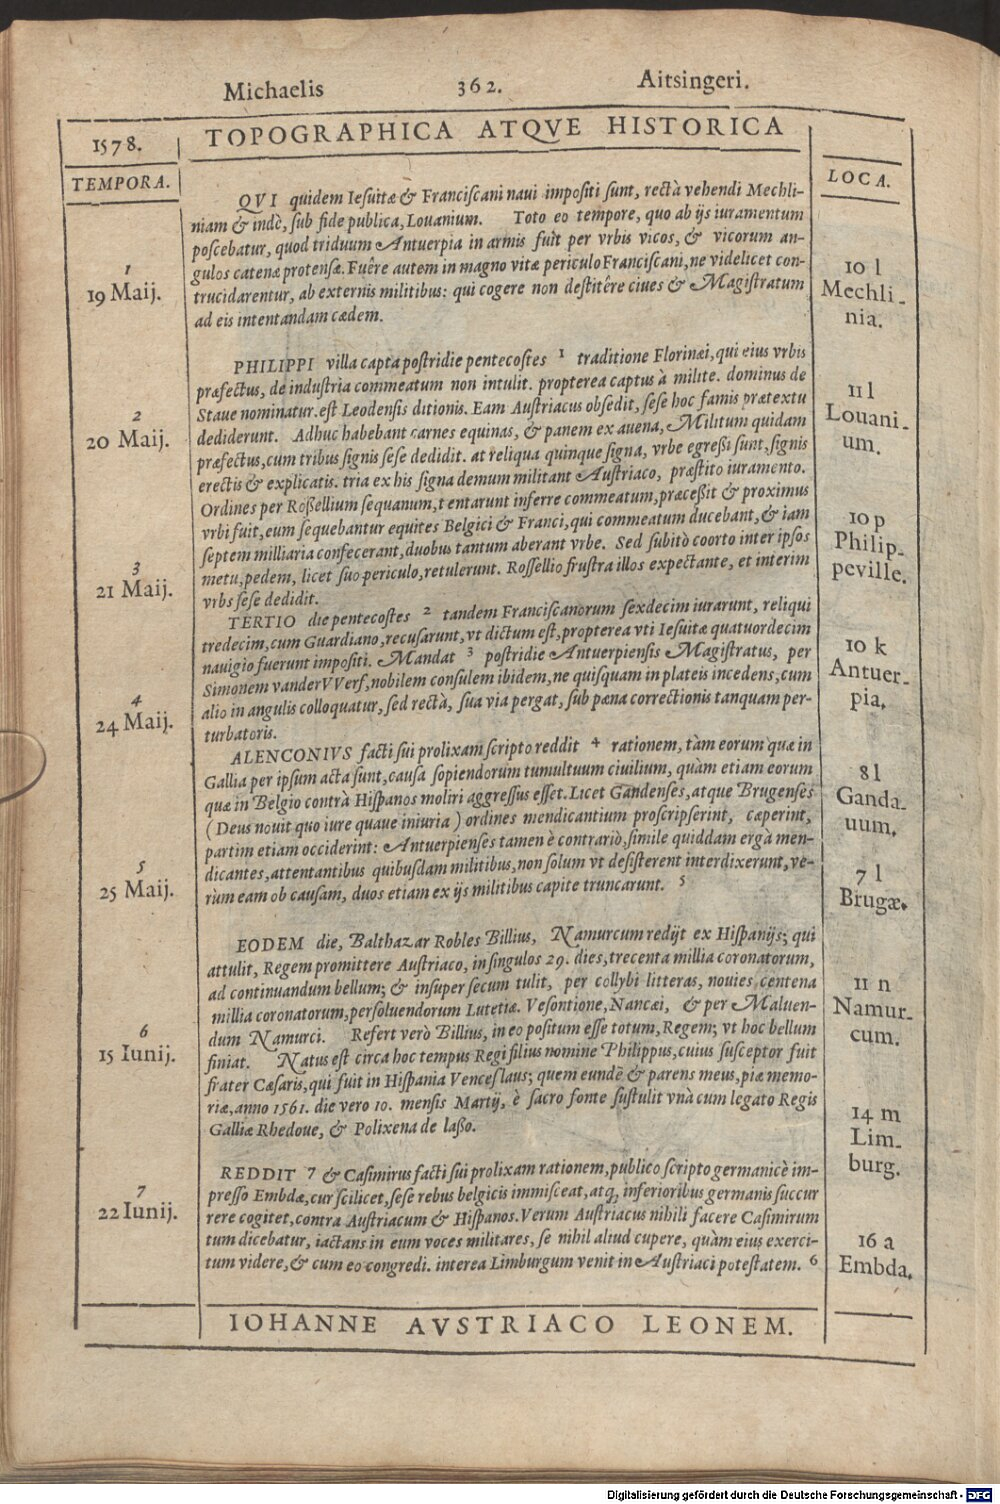 Michaelis 362. Aitsingeri.
1578. TOPOGRAPHICA ATQVE HISTORICA
TEMPORA.
LOCA.
QVI quidem Iesuitæ & Franciscani naui impositi sunt, rectà vehendi Mechli-
niam & indè, sub fide publica, Louanium. Toto eo tempore, quo ab ijs iuramentum
poscebatur, quod triduum Antuerpia in armis fuit per vrbis vicos, & vicorum an-
gulos catenæ protensæ. Fuêre autem in magno vitæ periculo Franciscani, ne videlicet con-
trucidarentur, ab externis militibus: qui cogere non destitêre ciues & Magistratum
ad eis intentandam cædem.
PHILIPPI villa capta postridie pentecostes 1 traditione Florinæi, qui eius vrbis
præfectus, de industria commeatum non intulit. propterea captus à milite. dominus de
Staue nominatur. est Leodensis ditionis. Eam Austriacus obsedit, sese hoc famis prætextu
dediderunt. Adhuc habebant carnes equinas, & panem ex auena, Militum quidam
præfectus, cum tribus signis sese dedidit. at reliqua quinque signa, vrbe egreßi sunt, signis
erectis & explicatis. tria ex his signa demum militant Austriaco, præstito iuramento.
Ordines per Roßellium sequanum, tentarunt inferre commeatum, præceßit & proximus
vrbi fuit, eum sequebantur equites Belgici & Franci, qui commeatum ducebant, & iam
septem milliaria confecerant, duobus tantum aberant vrbe. Sed subitò coorto inter ipsos
metu, pedem, licet suo periculo, retulerunt. Rossellio frustra illos expectante, et interim
vrbs sese dedidit.
TERTIO die pentecostes 2 tandem Franciscanorum sexdecim iurarunt, reliqui
tredecim, cum Guardiano, recusarunt, vt dictum est, propterea vti Iesuitæ quatuordecim
nauigio fuerunt impositi. Mandat 3 postridie Antuerpiensis Magistratus, per
Simonem vander VVerf, nobilem consulem ibidem, ne quisquam in plateis incedens, cum
alio in angulis colloquatur, sed rectà, sua via pergat, sub pæna correctionis tanquam per-
turbatoris.
ALENCONIVS facti sui prolixam scripto reddit 4 rationem, tàm eorum quæ in
Gallia per ipsum acta sunt, causa sopiendorum tumultuum ciuilium, quàm etiam eorum
quæ in Belgio contrà Hispanos moliri aggressus esset. Licet Gandenses, atque Brugenses
( Deus nouit quo iure quaue iniuria ) ordines mendicantium proscripserint, cæperint,
partim etiam occiderint: Antuerpienses tamen è contrariò, simile quiddam ergà men-
dicantes, attentantibus quibusdam militibus, non solum vt desisterent interdixerunt, ve-
rùm eam ob causam, duos etiam ex ijs militibus capite truncarunt. 5
EODEM die, Balthazar Robles Billius, Namurcum redijt ex Hispanijs; qui
attulit, Regem promittere Austriaco, in singulos 29. dies, trecenta millia coronatorum,
ad continuandum bellum; & insuper secum tulit, per collybi litteras, nouies centena
millia coronatorum, persoluendorum Lutetiæ. Vesontione, Nancæi, & per Maluen-
dum Namurci. Refert verò Billius, in eo positum esse totum, Regem; vt hoc bellum
finiat. Natus est circa hoc tempus Regi filius nomine Philippus, cuius susceptor fuit
frater Cæsaris, qui fuit in Hispania Venceslaus; quem eundē & parens meus, piæ memo-
riæ, anno 1561. die vero 10. mensis Martij, è sacro fonte sustulit vnà cum legato Regis
Galliæ Rhedoue, & Polixena de laßo.
REDDIT 7 & Casimirus facti sui prolixam rationem, publico scripto germanicè im-
presso Embdæ, cur scilicet, sese rebus belgicis immisceat, atq, inferioribus germanis succur
rere cogitet, contra Austriacum & Hispanos. Verum Austriacus nihili facere Casimirum
tum dicebatur, iactans in eum voces militares, se nihil aliud cupere, quàm eius exerci-
tum videre, & cum eo congredi. interea Limburgum venit in Austriaci potestatem. 6
1
19 Maij.
2
20 Maij.
3
21 Maij.
4
24 Maij.
5
25 Maij.
6
15 Iunij.
7
22 Iunij.
10 l
Mechli-
nia.
11 l
Louani-
um.
10 p
Philip-
peville.
10 k
Antuer-
pia.
8 l
Ganda-
uum.
7 l
Brugæ.
11 n
Namur-
cum.
14 m
Lim-
burg.
16 a
Embda.
IOHANNE AVSTRIACO LEONEM.
Digitalisierung gefördert durch die Deutsche Forschungsgemeinschaft - DFG